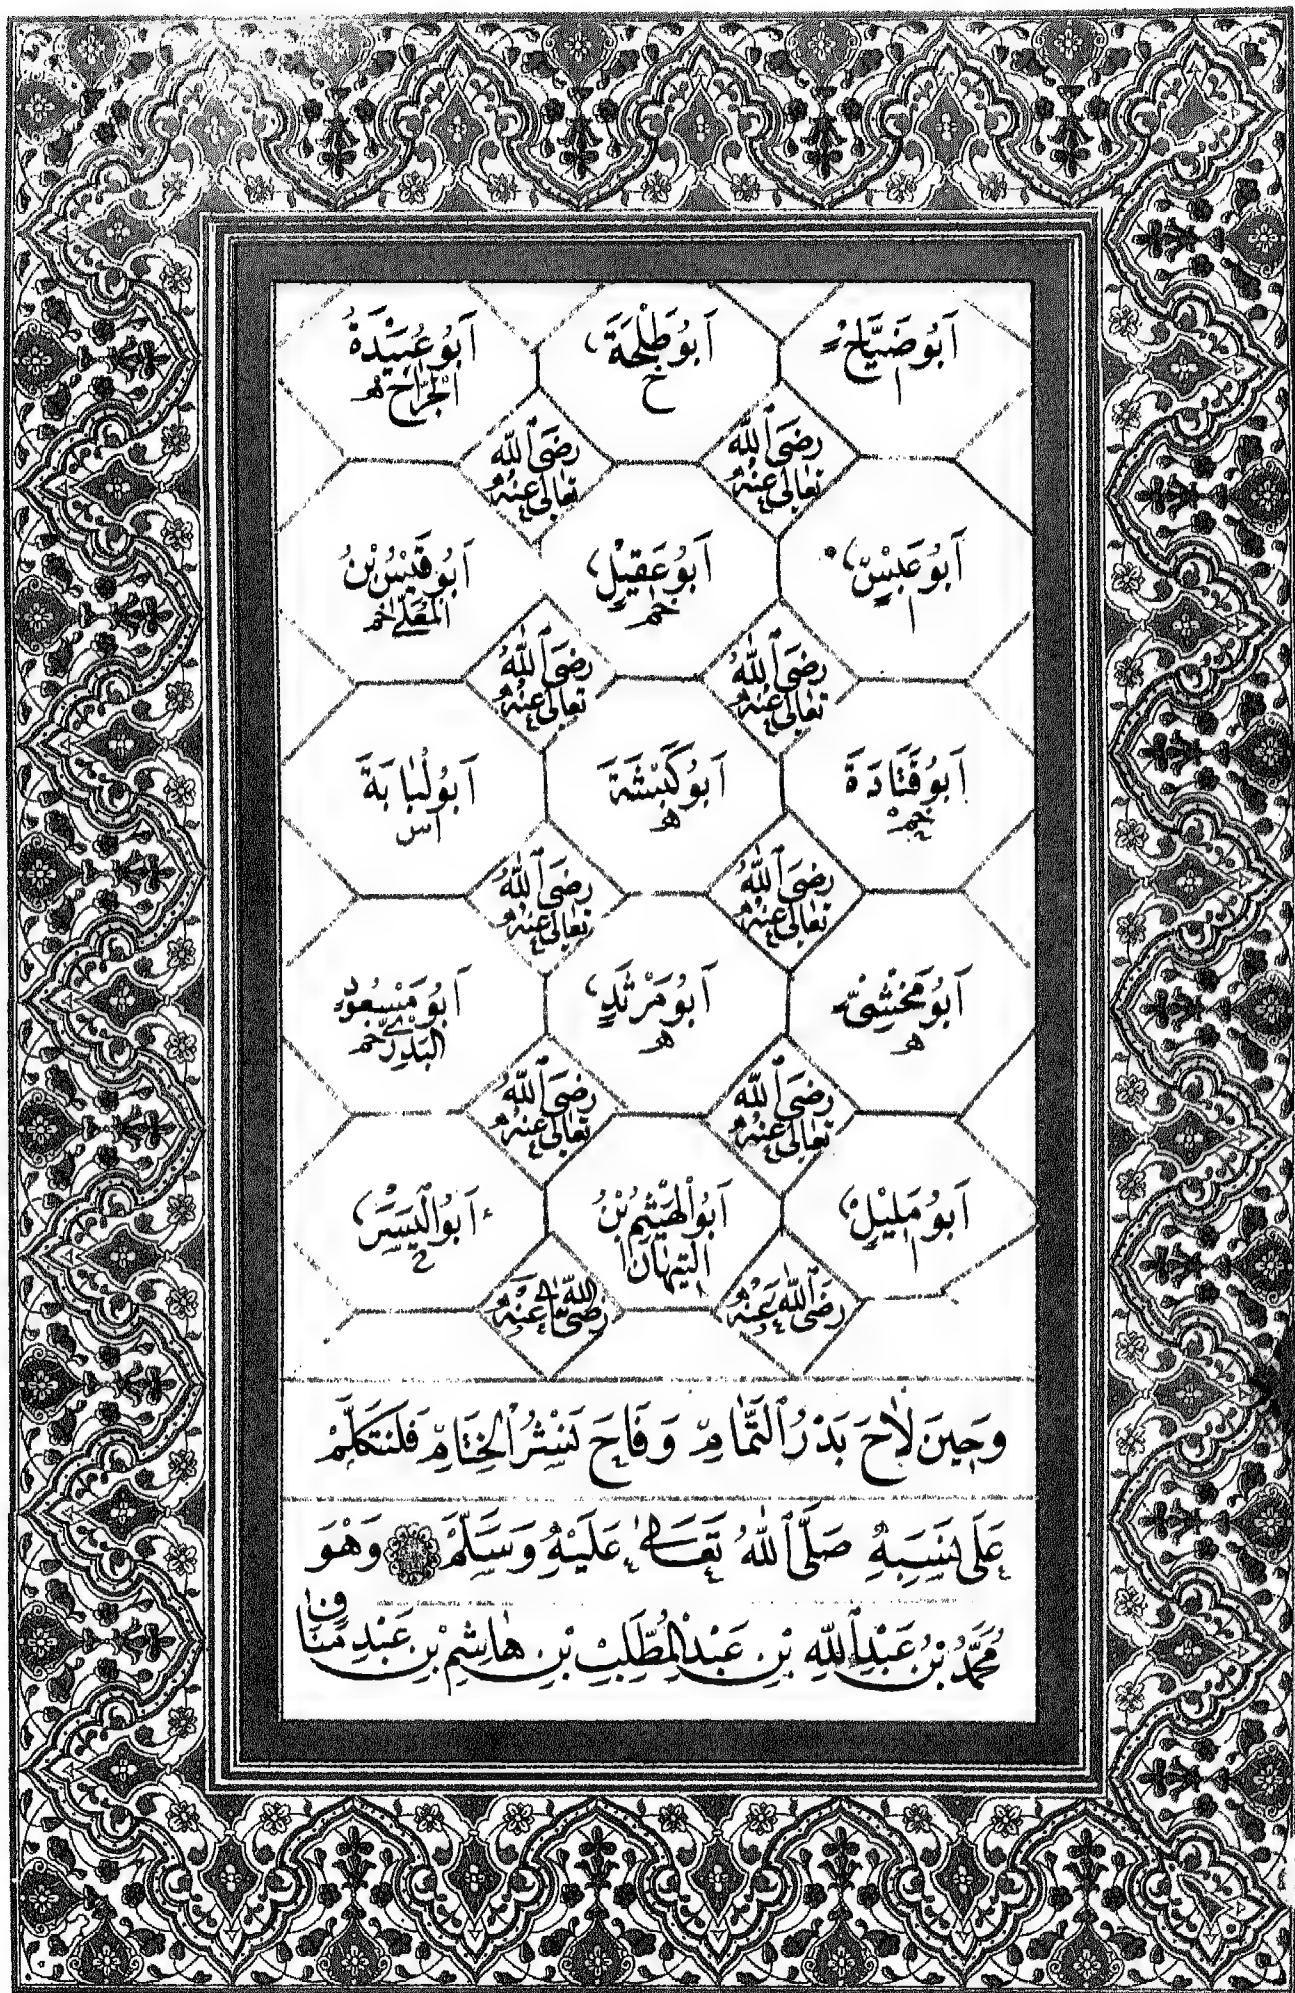 اَبُو ضَيَّاحٍ ا
اَبُو طَلْحَةَ خ
اَبُو عُبَيْدَةُ
الْجَرَّاحُ هـ
رَضِيَ اللّٰهُ
تَعَالٰى عَنْهُ
رَضِيَ اللّٰهُ
تَعَالٰى عَنْهُ
اَبُو عَبْسٍ ا
اَبُو عَقِيلٍ خم
اَبُو قَيْسُ بْنُ
الْمُعَلّٰى خم
رَضِيَ اللّٰهُ
تَعَالٰى عَنْهُ
رَضِيَ اللّٰهُ
تَعَالٰى عَنْهُ
اَبُو قَتَادَةَ خم
اَبُو كَبْشَةَ هـ
اَبُو لُبَابَةَ اس
رَضِيَ اللّٰهُ
تَعَالٰى عَنْهُ
رَضِيَ اللّٰهُ
تَعَالٰى عَنْهُ
اَبُو مَخْشِيٍّ هـ
اَبُو مَرْثَدٍ هـ
اَبُو مَسْعُودٍ
الْبَدْرِيّ خم
رَضِيَ اللّٰهُ
تَعَالٰى عَنْهُ
رَضِيَ اللّٰهُ
تَعَالٰى عَنْهُ
اَبُو مَلِيْلٍ ا
اَبُو الْهَيْثَمِ بْنُ
التَّيِّهَانِ ا
اَبُو الْيَسَرِ خ
رَضِيَ اللّٰهُ عَنْهُ
رَضِيَ اللّٰهُ تَعَالٰى عَنْهُ
وَحِينَ لَاحَ بَدْرُ التَّمَامِ وَفَاحَ نَشْرُ الْخِتَامِ فَلْنَتَكَلَّمْ
عَلٰى نَسَبِهِ صَلَّى اللّٰهُ تَعَالٰى عَلَيْهِ وَسَلَّمْ وَهْوَ
مُحَمَّدُ بْنُ عَبْدِ اللّٰهِ بْنِ عَبْدِ الْمُطَّلِبِ بْنِ هَاشِمِ بْنِ عَبْدِ مَنَافِ